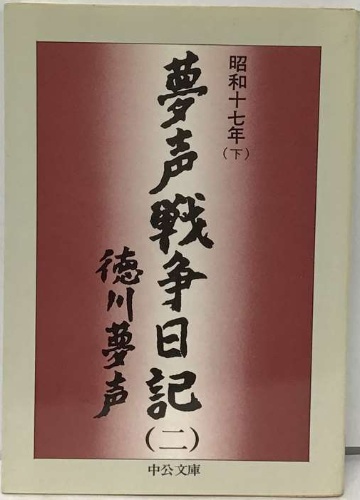 昭和十七年(下)
夢声戦争日記(二)
徳川夢声
中公文庫